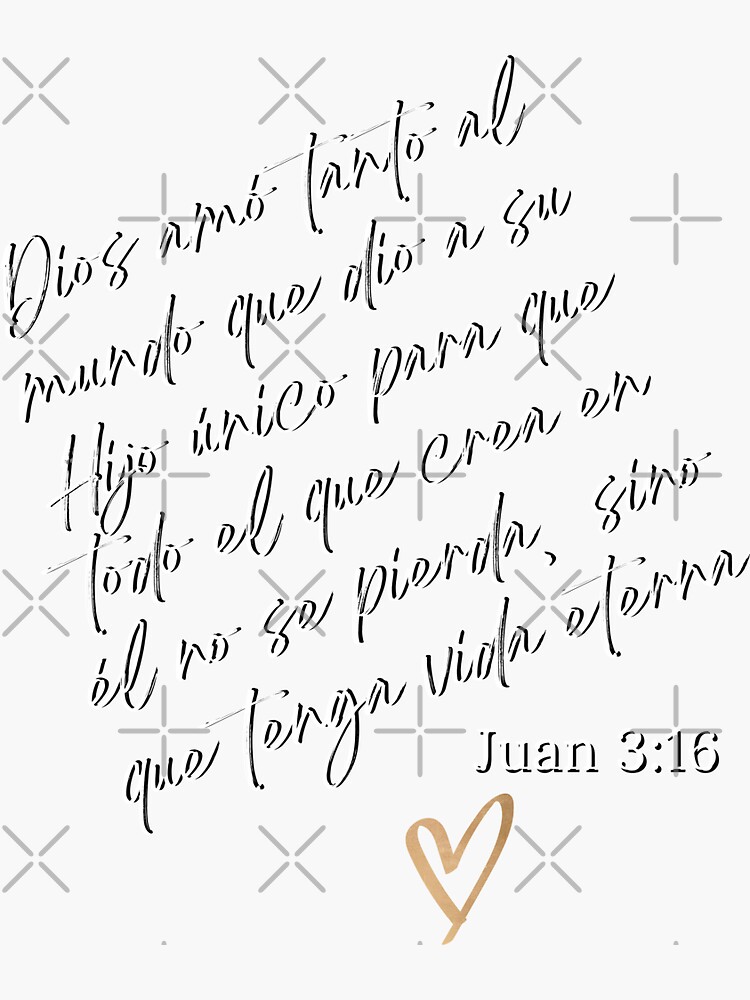 Dios amó tanto al
mundo que dio a su
Hijo único para que
todo el que crea en
él no se pierda, sino
que tenga vida eterna
Juan 3:16